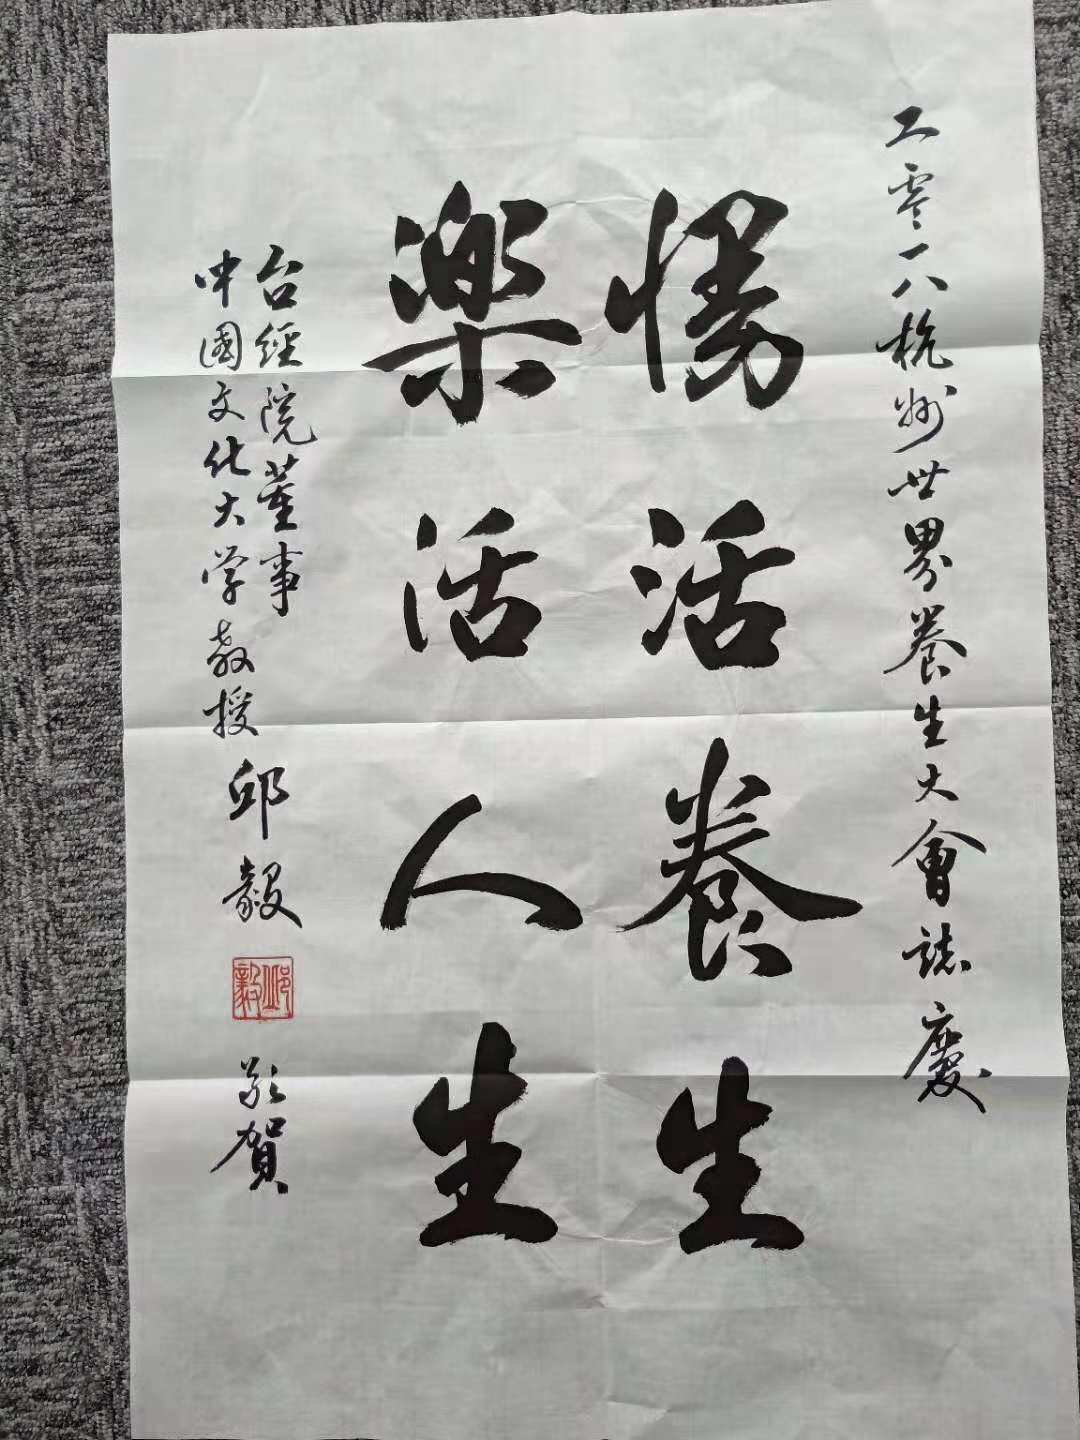 二零一八杭州世界養生大會誌慶
慢活養生
樂活人生
台經院董事
中國文化大学教授 邱毅
邱毅
敬賀